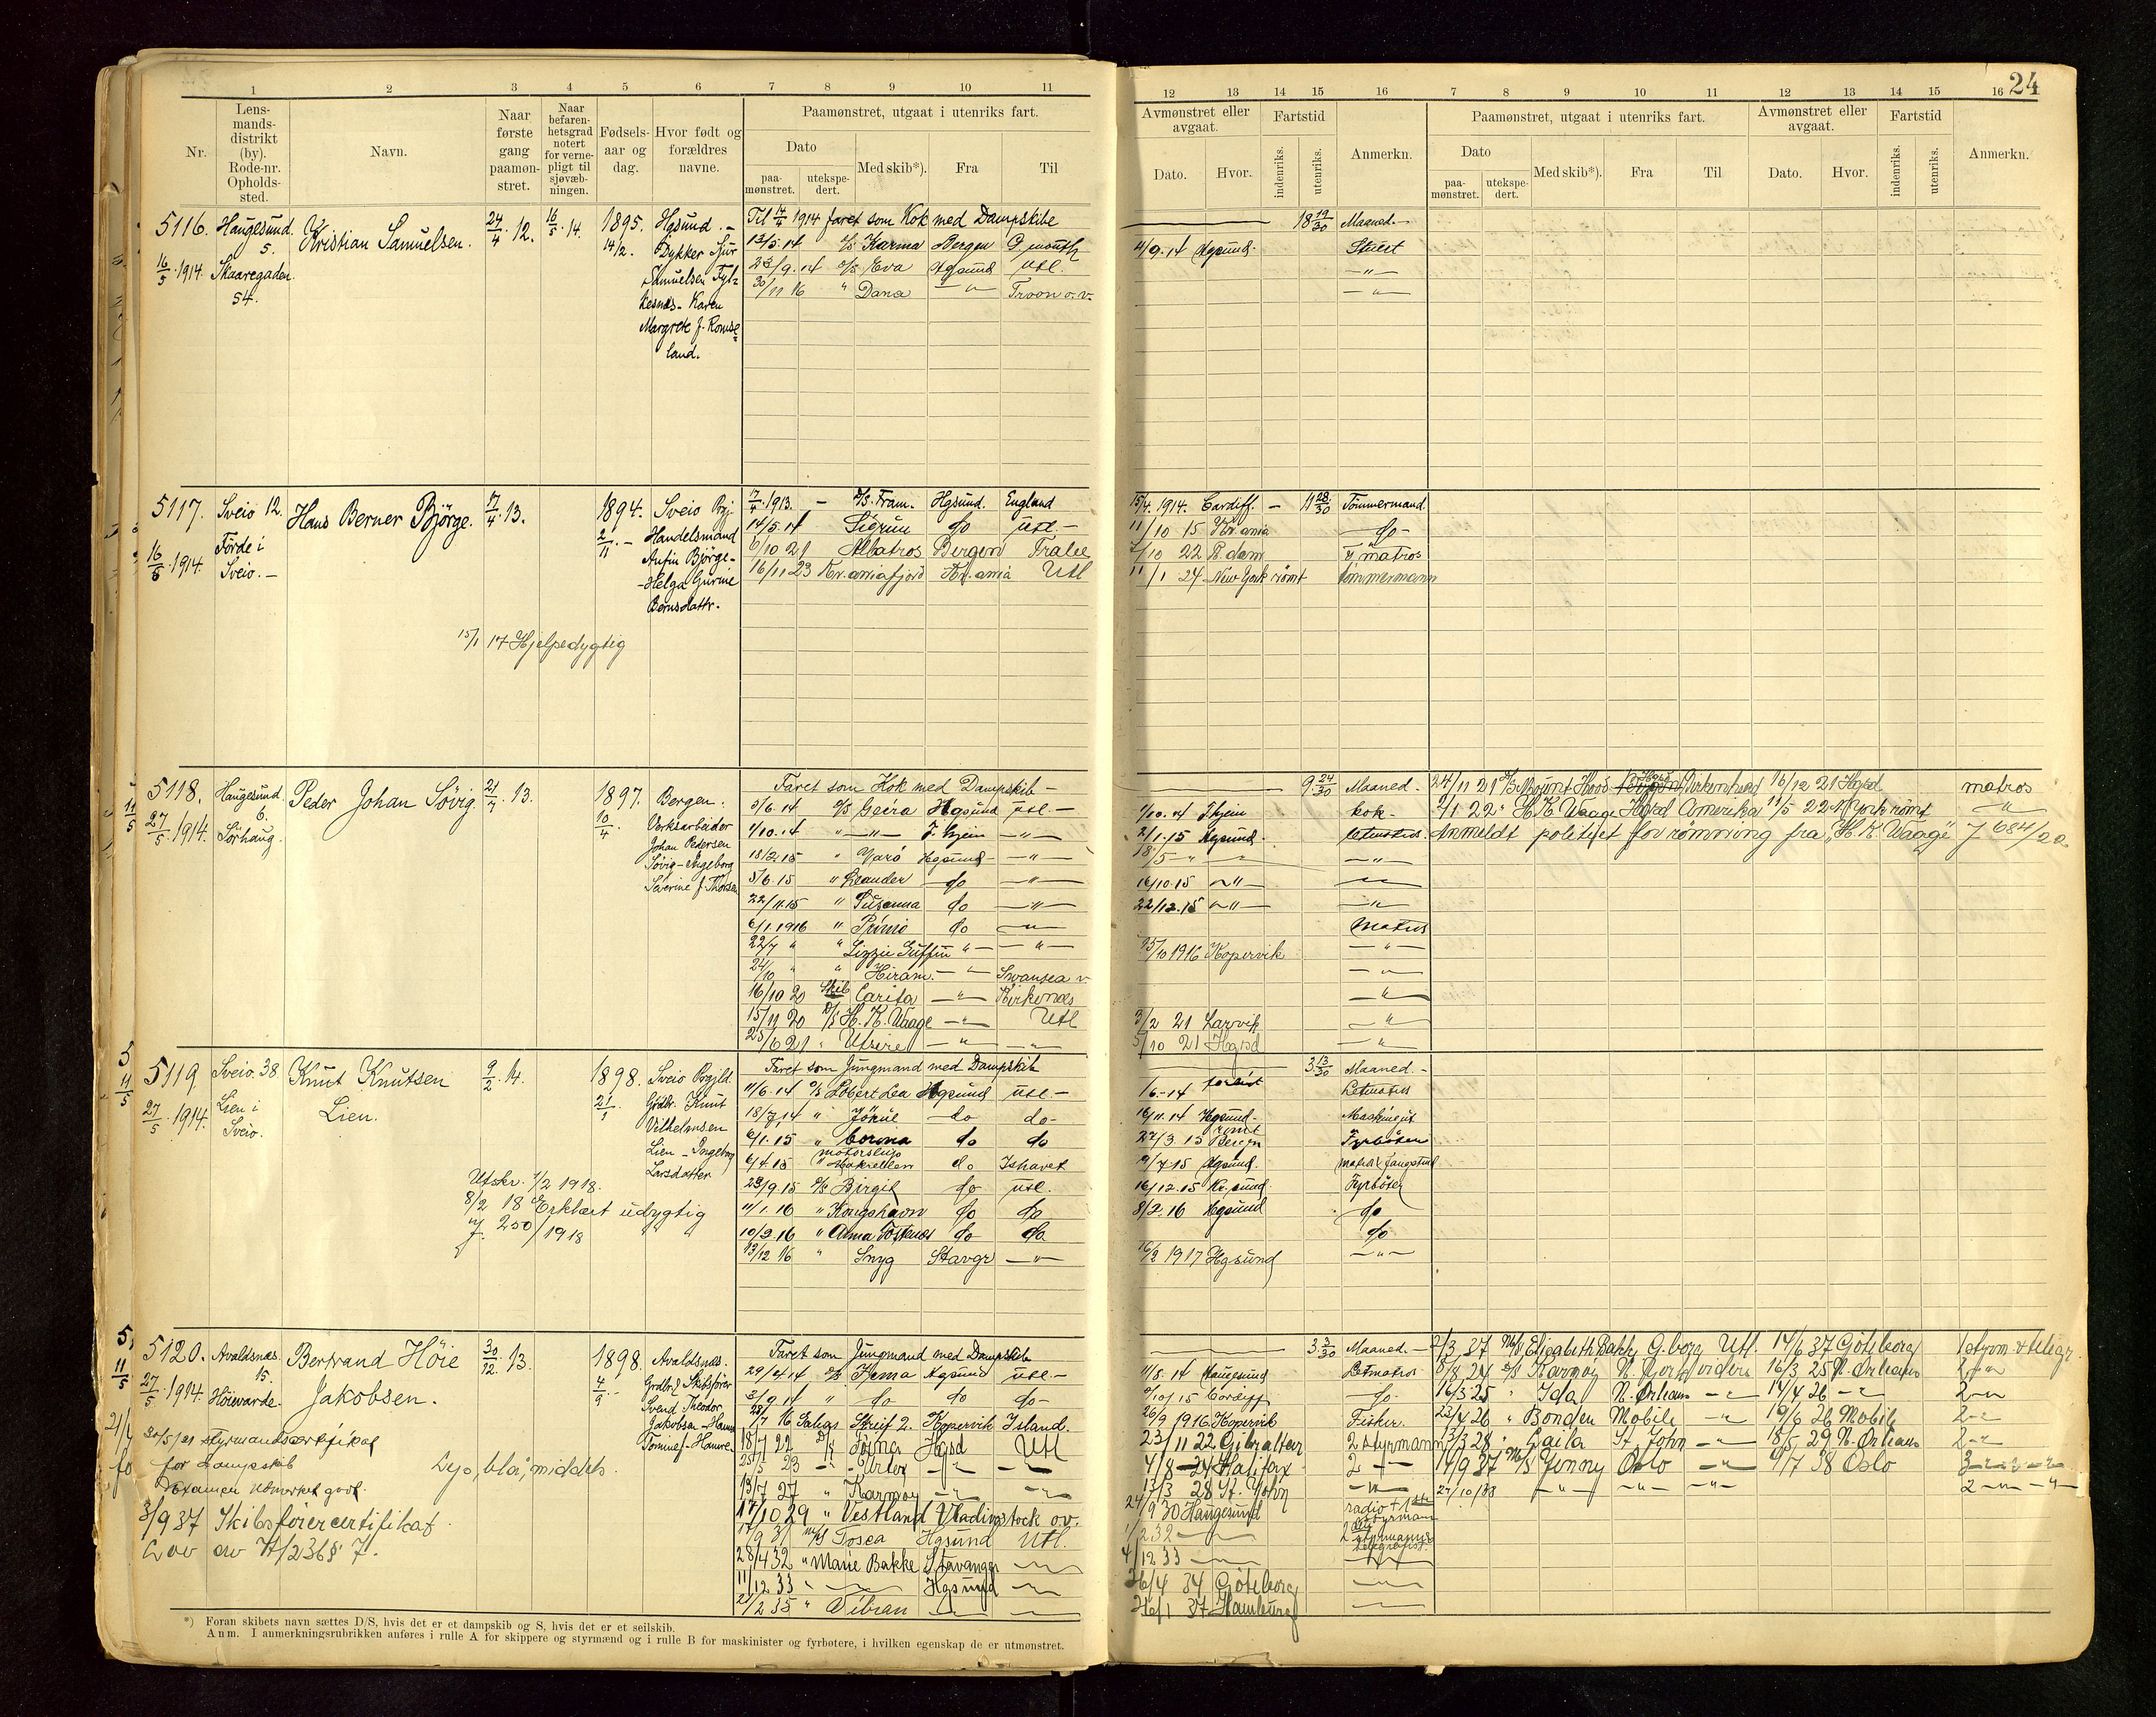 24
1 2 3 4 5 6 7 8 9 10 11
12 13 14 15 16 7 8 9 10 11 12 13 14 15 16
Nr.
Lens-
mands-
distrikt
(by).
Rode-nr.
Opholds-
sted.
Navn.
Naar
første
gang
paamøn-
stret.
Naar
befaren-
hetsgrad
notert
for verne-
pligt til
sjøvæb-
ningen.
Fødsels-
aar og
dag.
Hvor født og
forældres
navne.
Paamønstret, utgaat i utenriks fart.
Dato
paa-
mønstret.
utekspe-
dert.
Med skib*).
Fra
Til
Avmønstret eller
avgaat.
Dato.
Hvor.
Fartstid
indenriks.
utenriks.
Anmerkn.
Paamønstret, utgaat i utenriks fart.
Dato
paa-
mønstret.
utekspe-
dert.
Med skib*).
Fra
Til
Avmønstret eller
avgaat.
Dato.
Hvor.
Fartstid
indenriks.
utenriks.
Anmerkn.
5116. Haugesund. Kristian Samuelsen. 24/4.12. 16/5.14. 1895. Hgsund.
5. 14/2. Dykker Sjur
16/5.1914. Skaaregaden Samuelsen
54. Karen
Margrete f. Romse-
land.
Til 14/4 1914 faret som Kok med Dampskibe 18 19/30 Maaned.
13/5.14 D/S Karma Bergen 4/9.14 Hgsund Stuert
23/9.14 D/S Eva Hgsund Utl. —"—
30/11 16 " Dana —"— Troon o.v. —"—
5117. Sveio 12. Hans Berner Bjørge. 17/4.13. 1894. Sveio Prgj.
2/11. Handelsmand
16/5.1914. Førde i Anfin Bjørge
Sveio. Helga Gurine
Bernsdattr.
15/1 17 Hjelpedygtig
17/4.1913. D/S. Fram. Hgsund. England 15/4.1914. Cardiff. 11 28/30 Tømmermand.
14/5.14 Sigrun do Utl. 11/10 15 Kr.ania do
6/10 21 Albatros Bergen Tralee 7/10 22 R.dam matros
16/11 23 Kr.aniafjord Kr.ania Utl 11/1 24 New York rømt tømmermann
5118. Haugesund. Peder Johan Søvig. 21/7.13. 1897. Bergen.
6. 10/4. Verksarbeider
27/5.1914. Sørhaug. Johan Pedersen
Søvig - Ingeborg
Severine f. Thorsen
Faret som Kok med Dampskib 9 24/30 Maaned.
5/6.14 D/S Geira Hgsund Utl. 1/10.14 T.hjem kok.
1/10.14 " —"— T.hjem —"— 2/1.15 Hgsund. Letmatros.
18/2.15 " Varö Hgsund —"— 18/5 —"—
5/6.15 " Leander do —"— 16/10.15 —"—
22/11.15 " Susanna do —"— 22/12.15 —"—
6/1.1916 " Primo do —"— Matros
22/7 " " Lizzie Griffin —"— —"— 25/10 1916 Kopervik —"—
24/10 " " Hiram. —"— Swansea —"—
16/10 20 Skib Carita —"— Kirkenæs —"—
15/11 20 D/S H. K. Waage —"— Utl 3/2 21 Larvik —"—
25/6 21 " Utsire —"— —"— 5/10 21 Hgsd —"—
24/11 21 D/S Mount Hood Birkenhead 16/12 21 Hgsd matros
9/1 22 " H. K. Waage Hgsd Amerika 11/5 22 N.York rømt —"—
Anmeldt politiet for rømning fra "H. K. Waage" J 684/22.
5119. Sveio. 38. Knut Knutsen 9/2.14. 1898. Sveio Prgjld.
Lien. 21/1 Grdbr. Knut
27/5.1914. Lien i Vilhelmsen
Sveio. Lien - Ingeborg
Larsdatter
Utskr. 1/2 1918.
8/2 18 Erklært udygtig
J. 250/1918
Faret som Jungmand med Dampskib 3 13/30 Maaned.
11/6.14 D/S Robert Lea Hgsund Utl. Letmatros
18/7.14 " Jökul do do 16/11.14 Hgsund Maskingut
6/1.15 " Corona do do 27/3 15 Bergen rømt Fyrbøter
6/4.15 Motorslup Makrellen do Ishavet 9/7.15 Hgsund. matros fangstmd
29/9.15 D/S Birgit do Utl. 16/12.15 Kr.sund. Fyrbøter
11/1.16 " Kongshavn do do 8/2.16 Hgsund do
10/2.16 " Anna do do do
13/12 16 " Snyg Stavgr —"— 16/2 1917 Hgsund —"—
5120. Avaldsnæs. Bertrand Höie 30/12.13. 1898. Avaldsnæs.
15. Jakobsen. 4/9. Grdbr & Skibsfører
27/5.1914. Höievarde. Svend Theodor
Jakobsen
30/5/21 styrmandscertifikat
for dampskib
Examen utmerket godt.
Lys, blå, middels.
3/9 37 Skibsförercertifikat
Lov av 17/2 36 § 7.
Faret som Jungmand med Dampskib 3 3/30 Maaned.
29/4.14 D/S Hgsund Utl. 11/8.14 Haugesund Letmatros
2/9.14 " do do do 9/10/15 Cardiff do
28/7 16 Galgs. Streif 2. Kopervik Island. 26/9 1916 Kopervik Fisker.
18/7 22 D/S Hgsd Utl 23/11 22 Gibraltar 2 styrmann
25/5 23 —"— —"— —"— 4/8 24 Halifax 2 —"—
13/7 27 " Karmøy —"— —"— 13/3 28 St. John —"—
17/10 29 " Vestland Vladivostock o.v. 24/9 30 Haugesund radio + 1ste styrman
17/9 31 M/S Tosca Hgsund Utl. 2 32 —"— 2den styrmann telegrafist.
28/4 32 " Marie Bakke Stavanger —"— 4/12 33 —"— —"—
11/12 33 " —"— Hgsund —"— 26/4 34 Göteborg —"—
21/2 35 " Vibran —"— —"— 26/1 37 Hamburg —"—
2/3 37 M/S Elisabeth Bakke G.borg Utl. 14/6 37 Göteborg 1 styrm. + telegr.
8/8 24 D/S Karmøy N. York 16/3 25 N. Orleans 2 —"—
16/3 25 " Ida N. Orleans —"— 14/4 26 —"— 2 —"—
23/4 26 " Bonden Mobile —"— 19/6 26 Mobile 2 —"—
13/3 28 " Gaila St. John —"— 18/5 29 N. Orleans 2 —"—
14/9 37 M/S Jenny Oslo —"— 9/7 38 Oslo
27/10/38 —"— —"— —"— 2 —"—
*) Foran skibets navn sættes D/S, hvis det er et dampskib og S, hvis det er et seilskib.
Anm. I anmerkningsrubrikken anføres i rulle A for skippere og styrmænd og i rulle B for maskinister og fyrbøtere, i hvilken egenskap de er utmønstret.